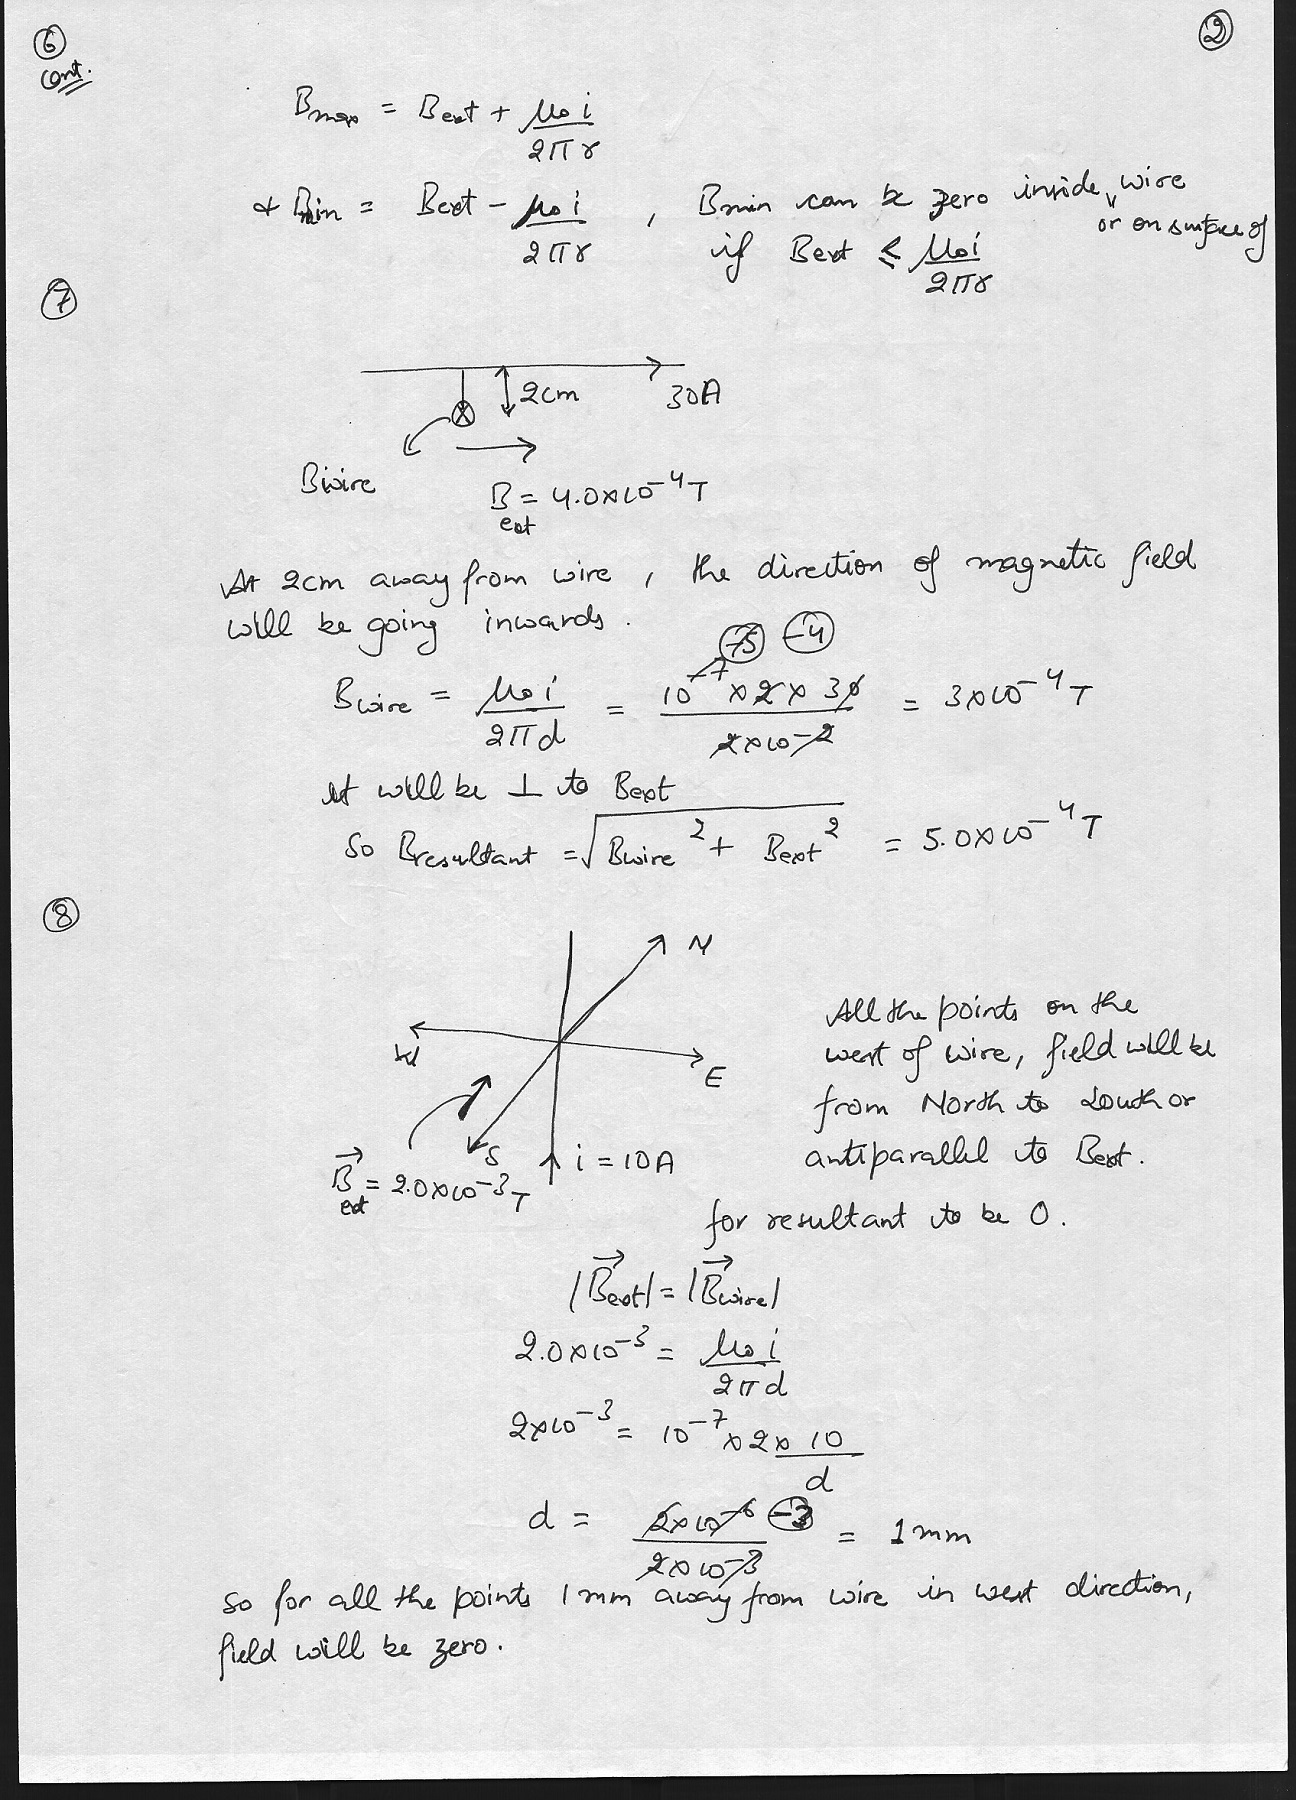 6 2
cont.
Bmax = Bext + μ₀i / 2πr
& Bmin = Bext - μ₀i / 2πr , Bmin can be zero inside wire
or on surface of
if Bext ≤ μ₀i / 2πr
7
2cm 30A
Bwire
Bext = 4.0×10⁻⁴T
At 2cm away from wire , the direction of magnetic field
will be going inwards .
-5 -4
Bwire = μ₀i / 2πd = 10⁻⁷ × 2 × 30 / 2×10⁻² = 3×10⁻⁴T
It will be ⊥ to Bext
So Bresultant = √(Bwire² + Bext²) = 5.0×10⁻⁴T
8
N
W
E
S
i = 10A
B⃗ext = 2.0×10⁻³T
All the points on the
west of wire, field will be
from North to South or
antiparallel to Bext.
for resultant to be 0.
|B⃗ext| = |B⃗wire|
2.0×10⁻³ = μ₀i / 2πd
2×10⁻³ = 10⁻⁷ × 2 × 10 / d
d = 2×10⁻⁶ / 2×10⁻³ -3 = 1mm
So for all the points 1mm away from wire in west direction,
field will be zero.